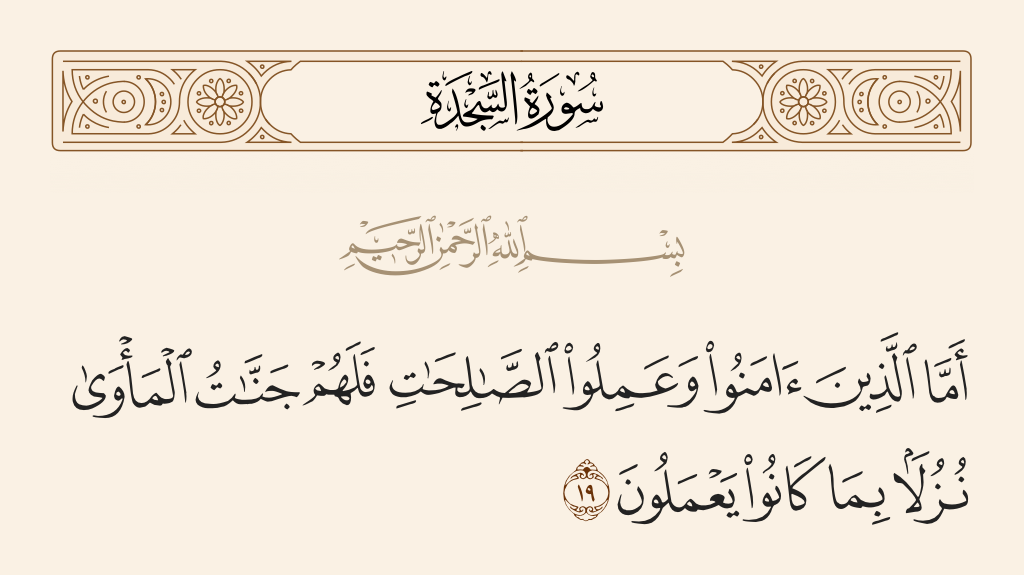 سُورَةُ السَّجْدَةِ
بِسْمِ ٱللَّهِ ٱلرَّحْمَٰنِ ٱلرَّحِيمِ
أَمَّا ٱلَّذِينَ ءَامَنُوا۟ وَعَمِلُوا۟ ٱلصَّٰلِحَٰتِ فَلَهُمْ جَنَّٰتُ ٱلْمَأْوَىٰ
نُزُلًۢا بِمَا كَانُوا۟ يَعْمَلُونَ ١٩